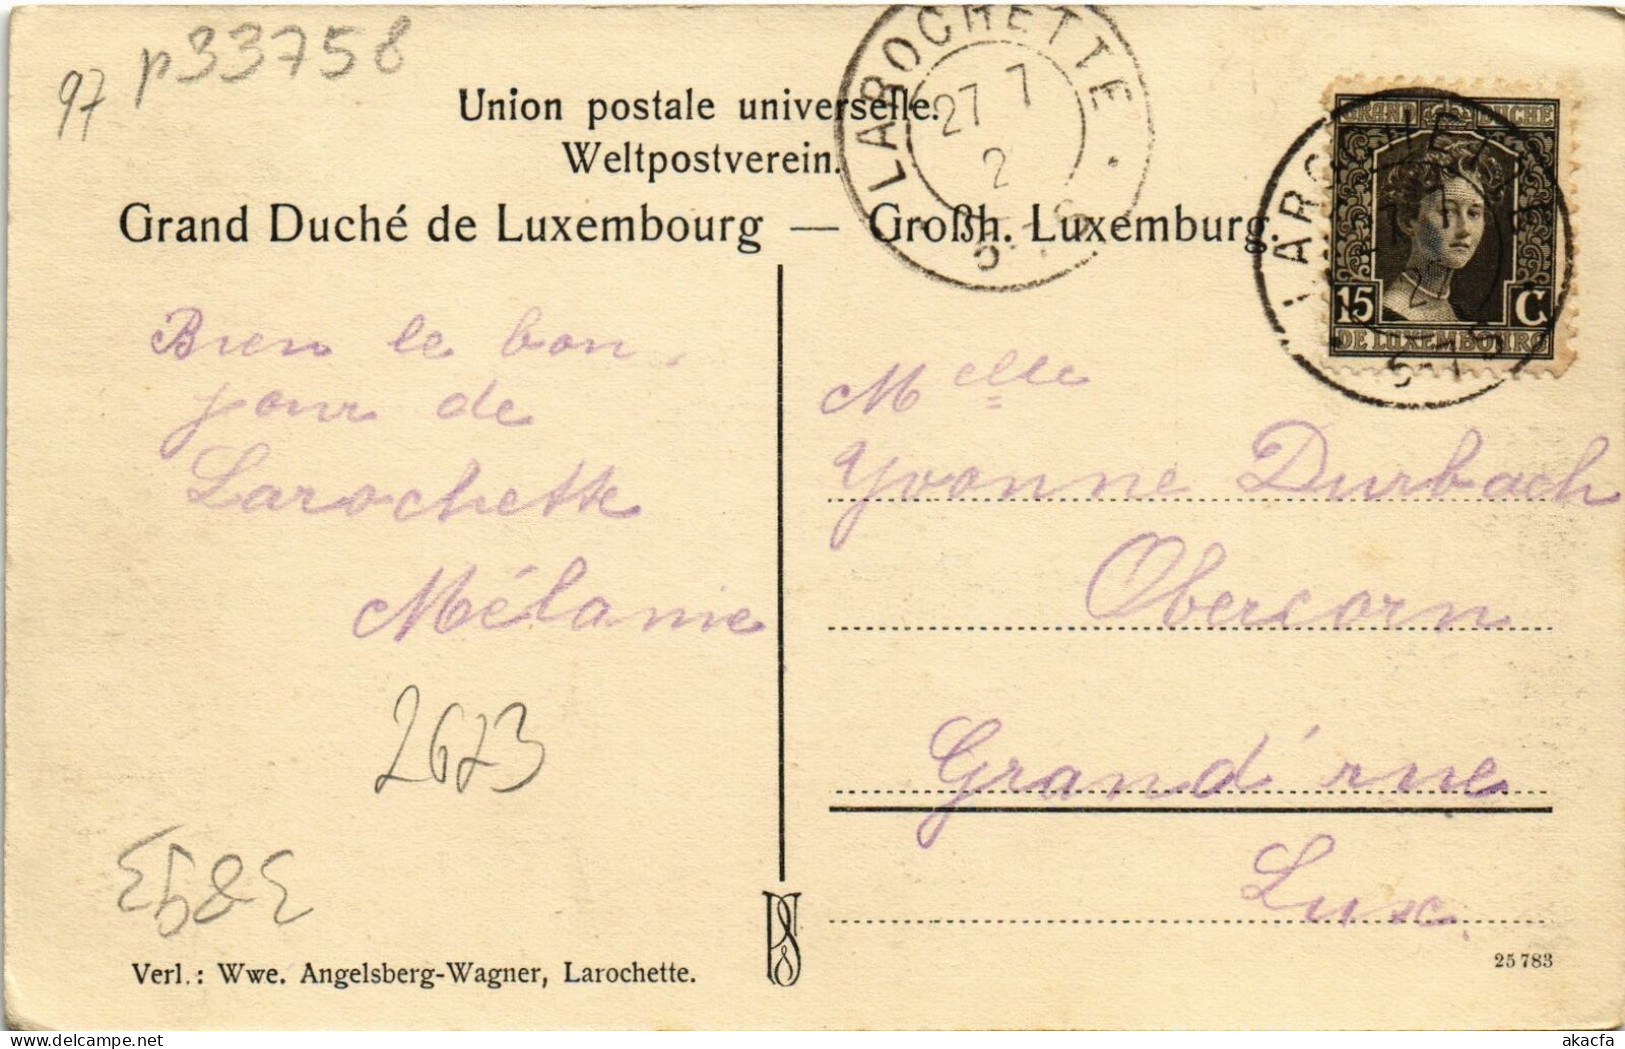 p33758
97
Union postale universelle.
Weltpostverein.
Grand Duché de Luxembourg — Großh. Luxemburg.
LAROCHETTE
27 7
2
GRAND DUCHÉ
15 C
DE LUXEMBOURG
LAROCHETTE
Bien le bon
jour de
Larochette
Mélanie
Melle
Yvonne Durbach
Obercorn
Grand'rue
Lux.
2673
Verl.: Wwe. Angelsberg-Wagner, Larochette.
25 783
delcampe.net
akacfa